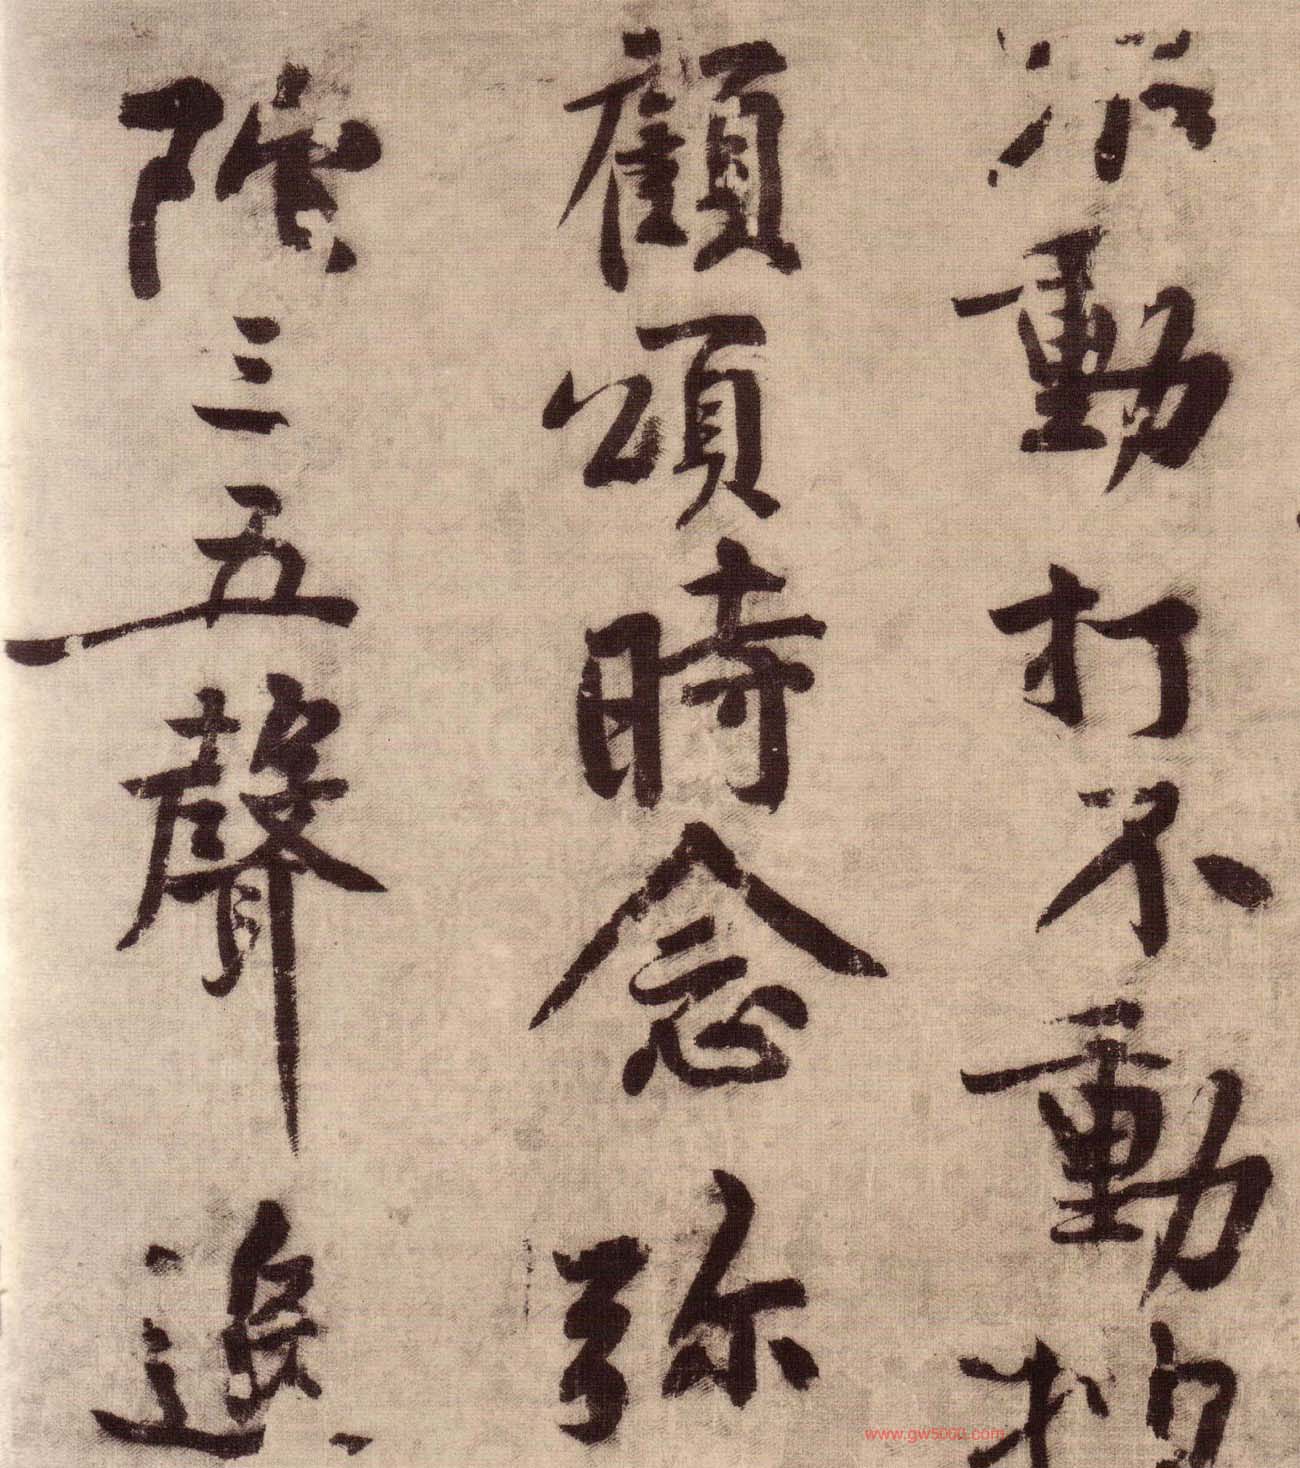 動打不動
顧頌時念弥
陀三五聲追
www.gw5000.com